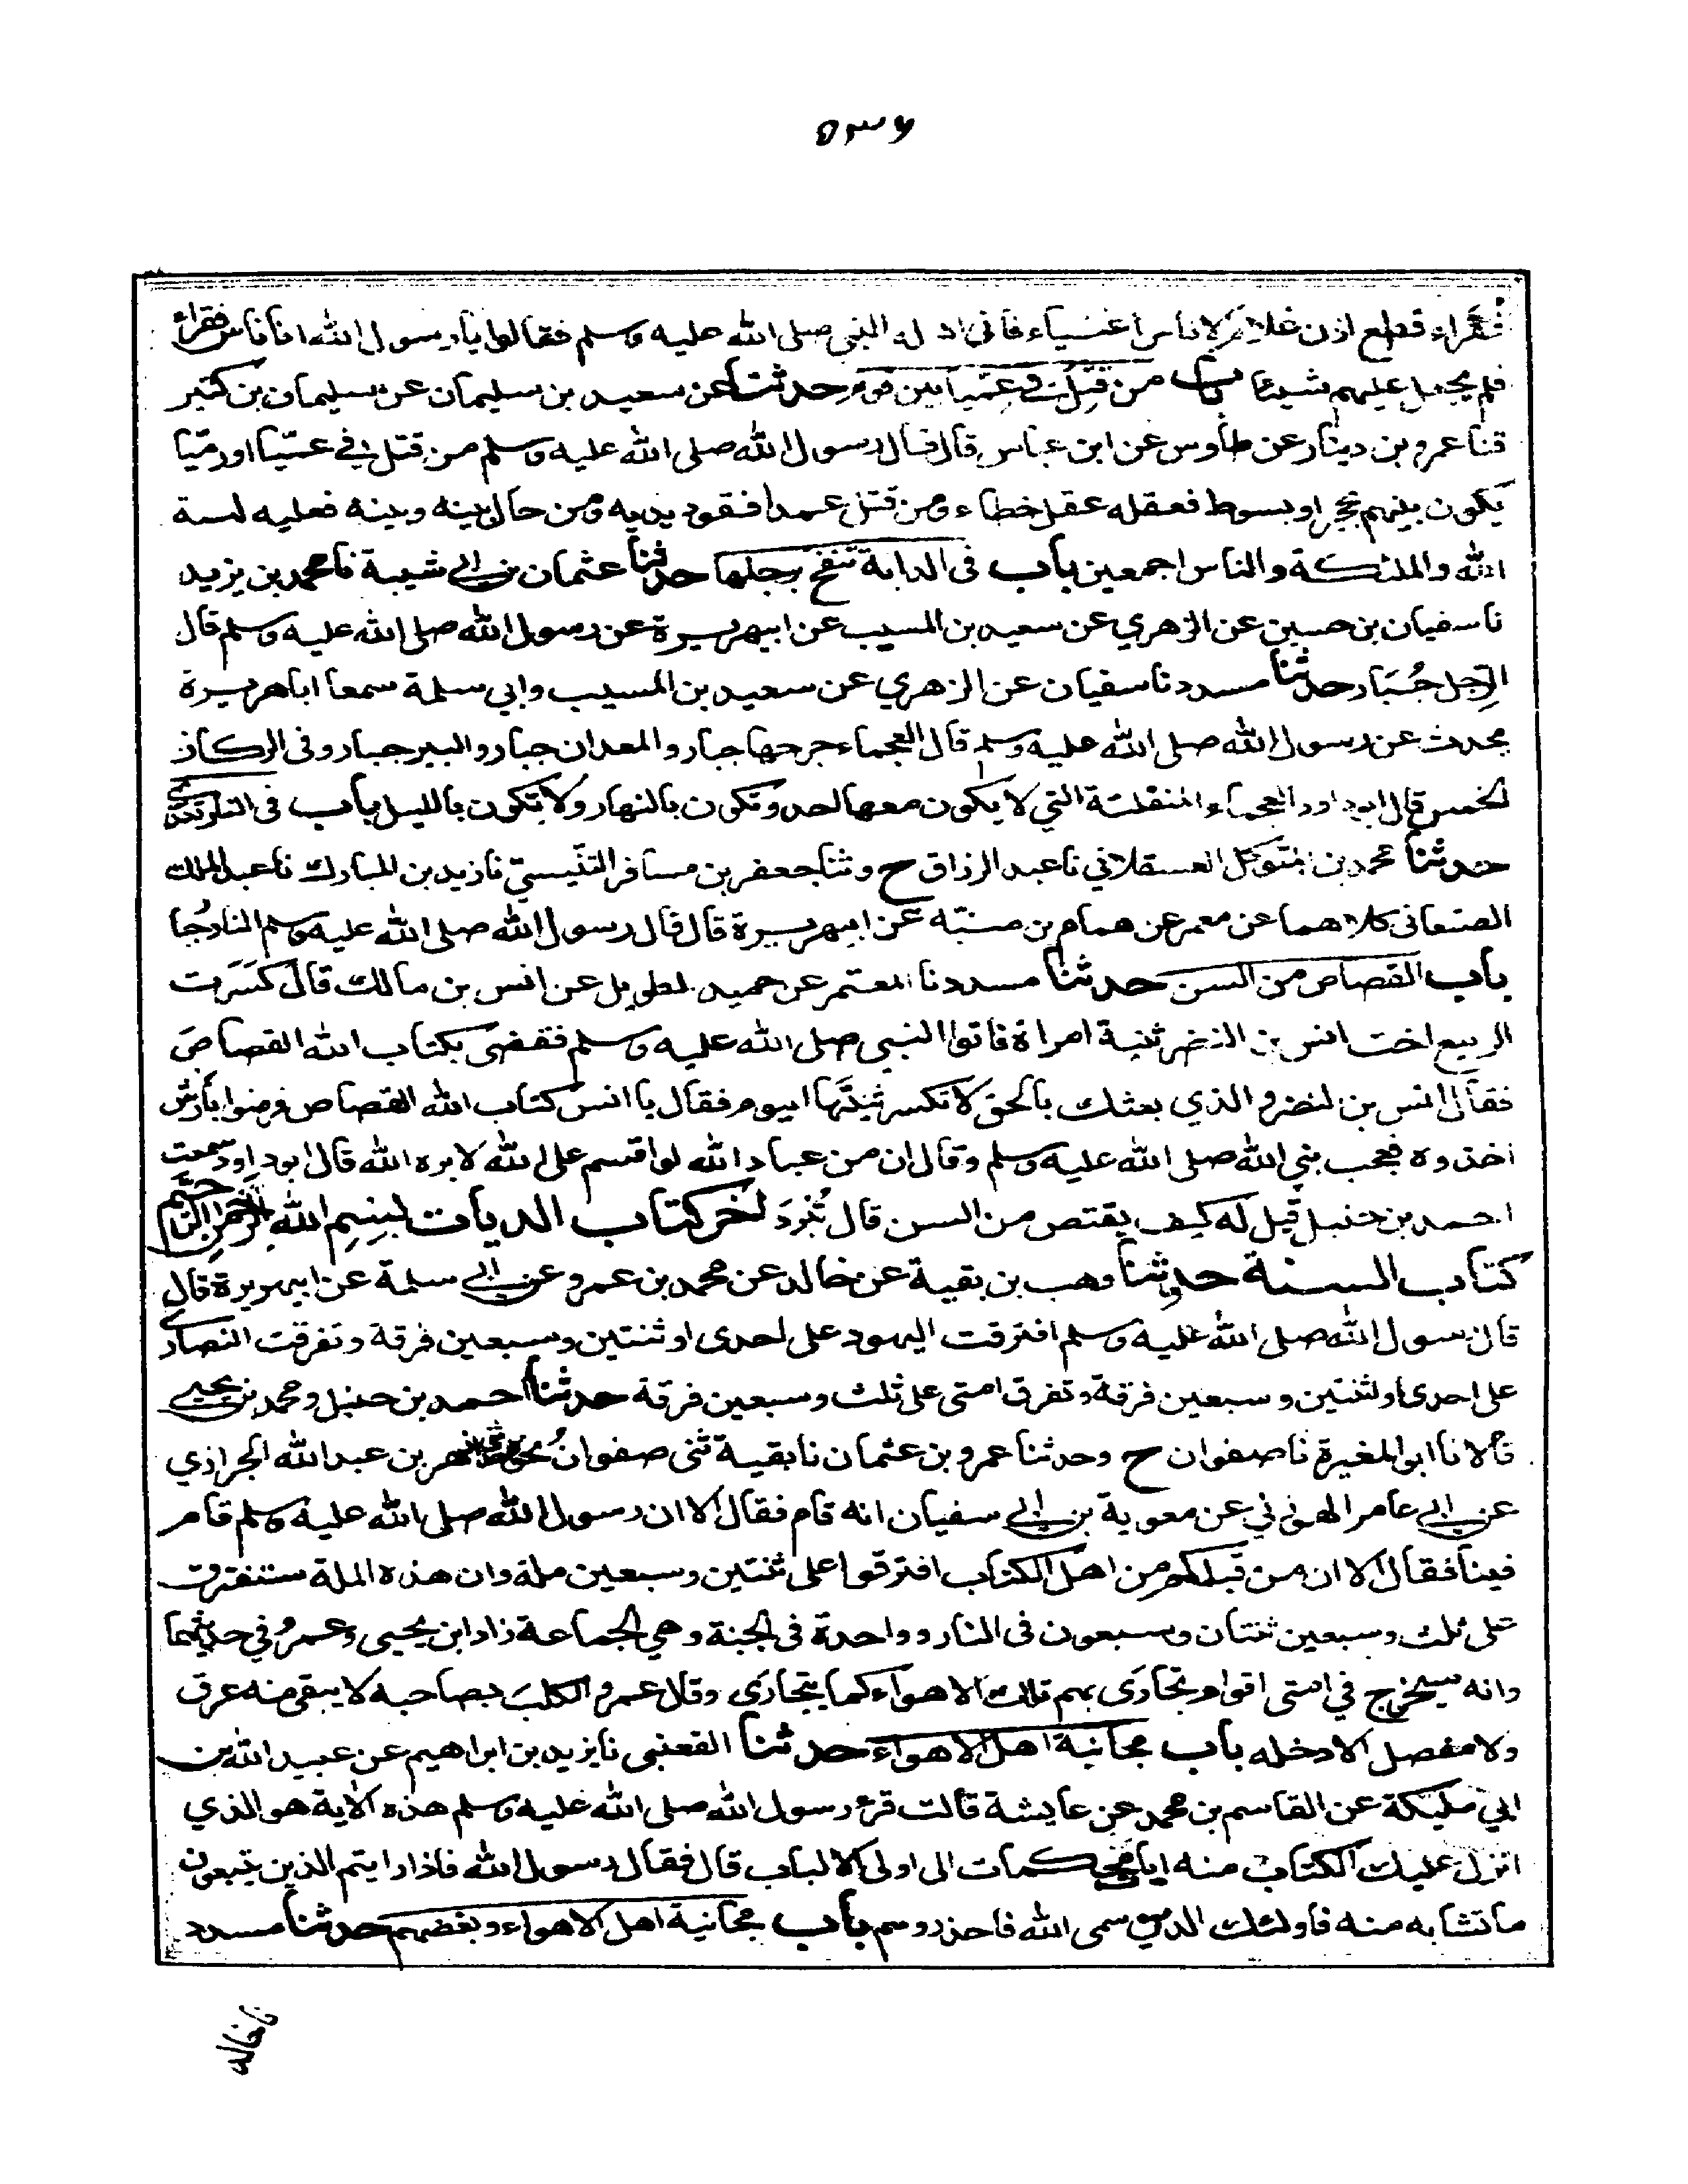 ٥٣٦
فقراء قطع اذن غلام لاناس اغنياء فاتى اهله النبي صلى الله عليه وسلم فقالوا يارسول الله انا ناس فقراء
فلم يجعل عليهم شيئا باب من قتل في عميا بين قوم حدثنا عن سعيد بن سليمان عن سليمان بن كثير
قثنا عمرو بن دينار عن طاوس عن ابن عباس قال قال رسول الله صلى الله عليه وسلم من قتل في عميا او رميا
يكون بينهم بحجر او بسوط فعقله عقل خطاء ومن قتل عمدا فقود يديه ومن حال بينه وبينه فعليه لعنة
الله والملئكة والناس اجمعين باب في الدابة تنفح برجلها حدثنا عثمان بن ابي شيبة نا محمد بن يزيد
نا سفيان بن حسين عن الزهري عن سعيد بن المسيب عن ابيهريرة عن رسول الله صلى الله عليه وسلم قال
الرِجل جُبَار حدثنا مسدد نا سفيان عن الزهري عن سعيد بن المسيب وابي سلمة سمعا اباهريرة
يحدث عن رسول الله صلى الله عليه وسلم قال العجماء جرحها جبار والمعدان جبار والبير جبار وفى الركاز
الخمس قال ابوداود العجماء المنفلتة التي لا يكون معها احد وتكون بالنهار ولا تكون بالليل باب فى النار تعدى
حدثنا محمد بن المتوكل العسقلاني نا عبد الرزاق ح وثنا جعفر بن مسافر التنّيسيّ نا زيد بن المبارك نا عبد الملك
الصنعانى كلاهما عن معمر عن همام بن منبّه عن ابيهريرة قال قال رسول الله صلى الله عليه وسلم النار جُبا
باب القصاص من السن حدثنا مسدد نا المعتمر عن حميد الطويل عن انس بن مالك قال كَسَرَت
الربيع اخت انس بن النضر ثنية امراة فاتوا النبي صلى الله عليه وسلم فقضى بكتاب الله القصاصَ
فقال انس بن النضر و الذي بعثك بالحق لا تكسر ثنيَّتها اليوم فقال يا انس كتاب الله القصاص فرضوا بأرش
اخذوه فعجب نبي الله صلى الله عليه وسلم وقال ان من عباد الله لو اقسم على الله لابره الله قال ابوداود سمعت
احمد بن حنبل قيل له كيف يقتص من السن قال تُبْرَدَ اخر كتاب الديات بِسِمِ الله الرحمن الرحيم
كتاب السنة حدثنا وهب بن بقية عن خالد عن محمد بن عمرو عن ابي سلمة عن ابيهريرة قال
قال رسول الله صلى الله عليه وسلم افترقت اليهود على احدى او ثنتين وسبعين فرقة وتفرقت النصارى
على احدى او ثنتين و سبعين فرقة وتفرق امتى على ثلث وسبعين فرقة حدثنا احمد بن حنبل ومحمد بن يحيى
قالا نا ابو المغيرة نا صفوان ح وحدثنا عمرو بن عثمان نا بقية ثنى صفوان نحوه ازهر بن عبد الله الحرازي
عن ابي عامر الهوزني عن معوية بن ابي سفيان انه قام فقال الا ان رسول الله صلى الله عليه وسلم قام
فينا فقال الا ان من قبلكم من اهل الكتاب افترقوا على ثنتين وسبعين ملة وان هذه الملة ستفترق
على ثلث وسبعين ثنتان وسبعون فى النار وواحدة فى الجنة وهي الجماعة زاد ابن يحيى وعمرو في حديثهما
وانه سيخرج في امتى اقوام تجارَى بهم تلك الاهواء كما يتجارَى وقال عمرو الكلب بصاحبه لا يبقى منه عرق
ولا مفصل الا دخله باب مجانبة اهل الاهواء حدثنا القعنبى نا يزيد بن ابراهيم عن عبيد الله بن
ابي مليكة عن القاسم بن محمد عن عايشة قالت قرء رسول الله صلى الله عليه وسلم هذه الاية هو الذي
انزل عليك الكتاب منه ايات محكمات الى اولى الالباب قال فقال رسول الله فاذا رايتم الذين يتبعون
ما تشابه منه فاولئك الذين سمى الله فاحذروهم باب مجانبة اهل الاهواء وبغضهم حدثنا مسدد
نا خالد